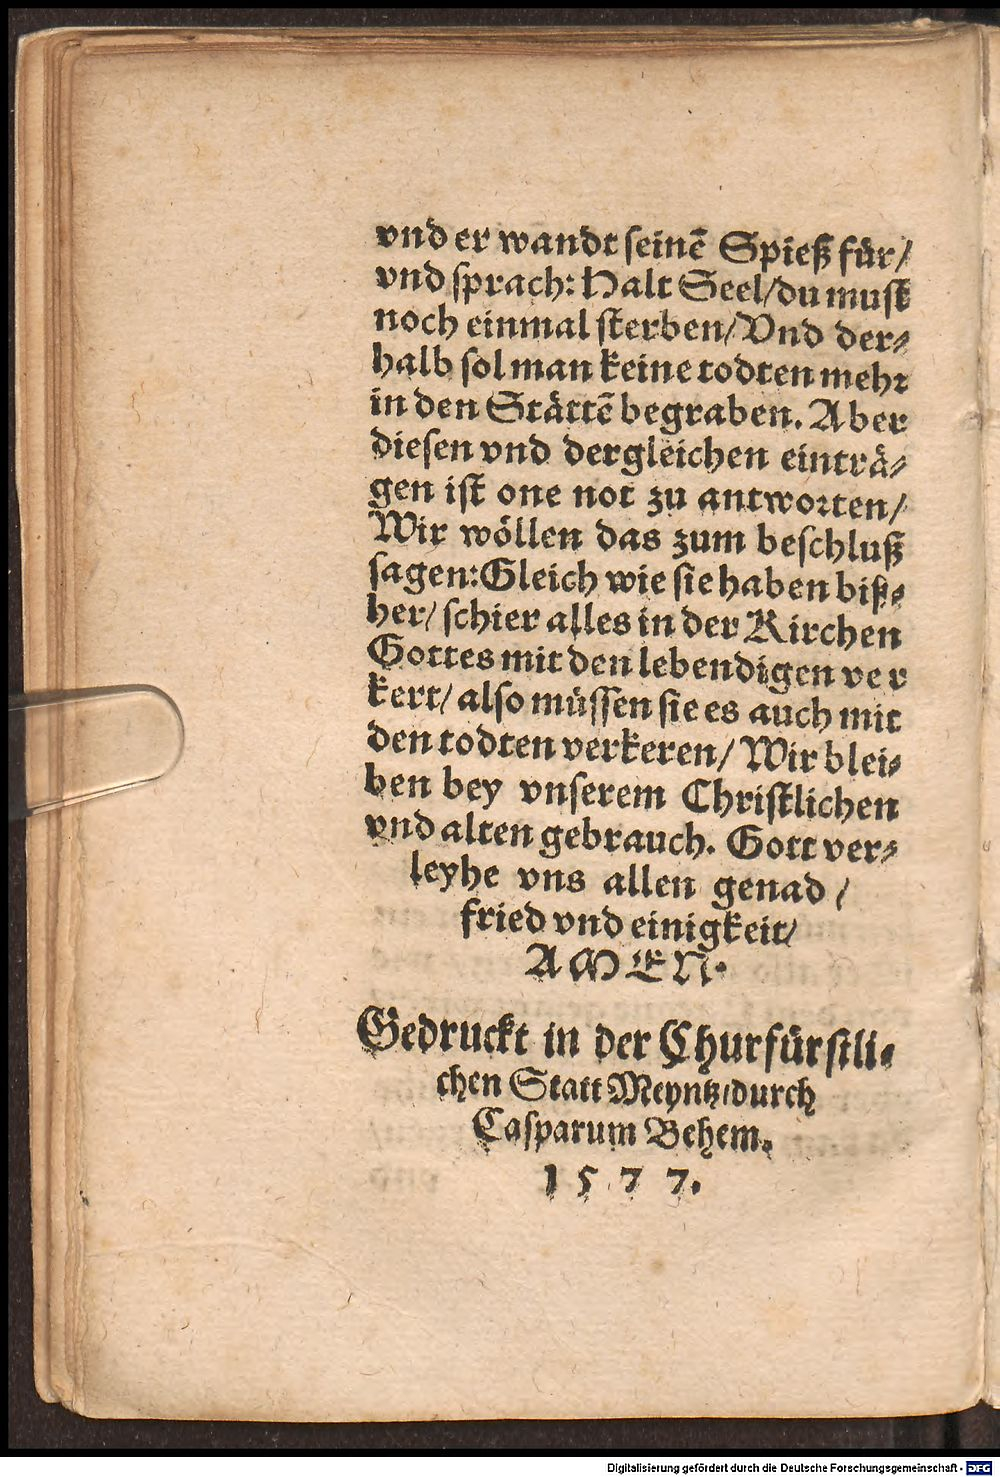 vnd er wandt ſeinē Spieß für/
vnd ſprach: Halt Seel/du muſt
noch einmal ſterben/Vnd der⸗
halb ſol man keine todten mehꝛ
in den Stättē begraben. Aber
dieſen vnd dergleichen einträ⸗
gen iſt one not zu antwoꝛten/
Wir wöllen das zum beſchluß
ſagen:Gleich wie ſie haben biß⸗
her/ ſchier alles in der Kirchen
Gottes mit den lebendigen ve r
kert/ alſo müſſen ſie es auch mit
den todten verkeren/ Wir blei⸗
ben bey vnſerem Chriſtlichen
vnd alten gebrauch. Gott ver⸗
leyhe vns allen genad /
fried vnd einigkeit/
AMEN.
Gedruckt in der Churfürſtli⸗
chen Statt Meyntz/durch
Caſparum Behem.
1577.
Digitalisierung gefördert durch die Deutsche Forschungsgemeinschaft - DFG